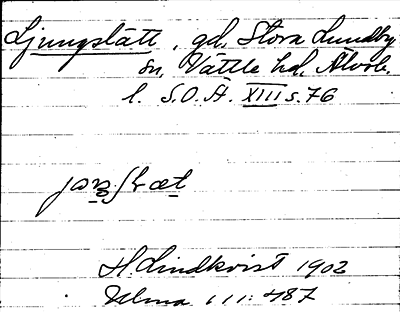 Ljungslätt, gd, Stora Lundby
sn, Vättle hd, Älvsb.
l. S.O.A. XIII s. 76
H. Lindkvist 1902
Ulma 111:487